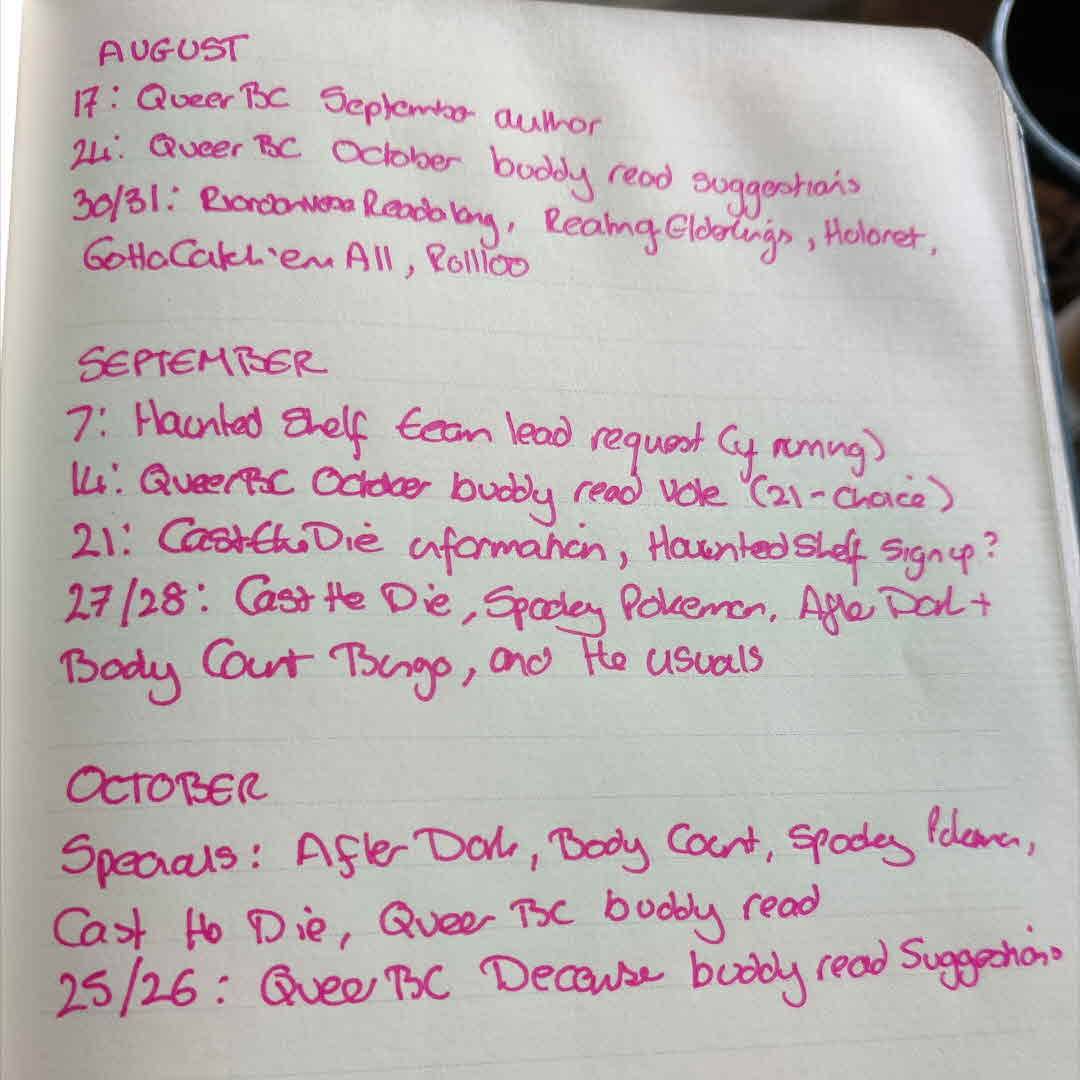 AUGUST
17: Queer BC September author
24: Queer BC October buddy read suggestions
30/31: Readalong, Realmg Elderlings, Holoret,
Gotta Catch 'em All, Roll100
SEPTEMBER
7: Haunted Shelf team lead request (if running)
14: Queer BC October buddy read vote (21 - choice)
21: Cast the Die information, Haunted Shelf sign up?
27/28: Cast the Die, Spooky Pokemon, After Dark +
Body Count Bingo, and the usuals
OCTOBER
Specials: After Dark, Body Count, Spooky Pokemon,
Cast the Die, Queer BC buddy read
25/26: Queer BC December buddy read suggestions